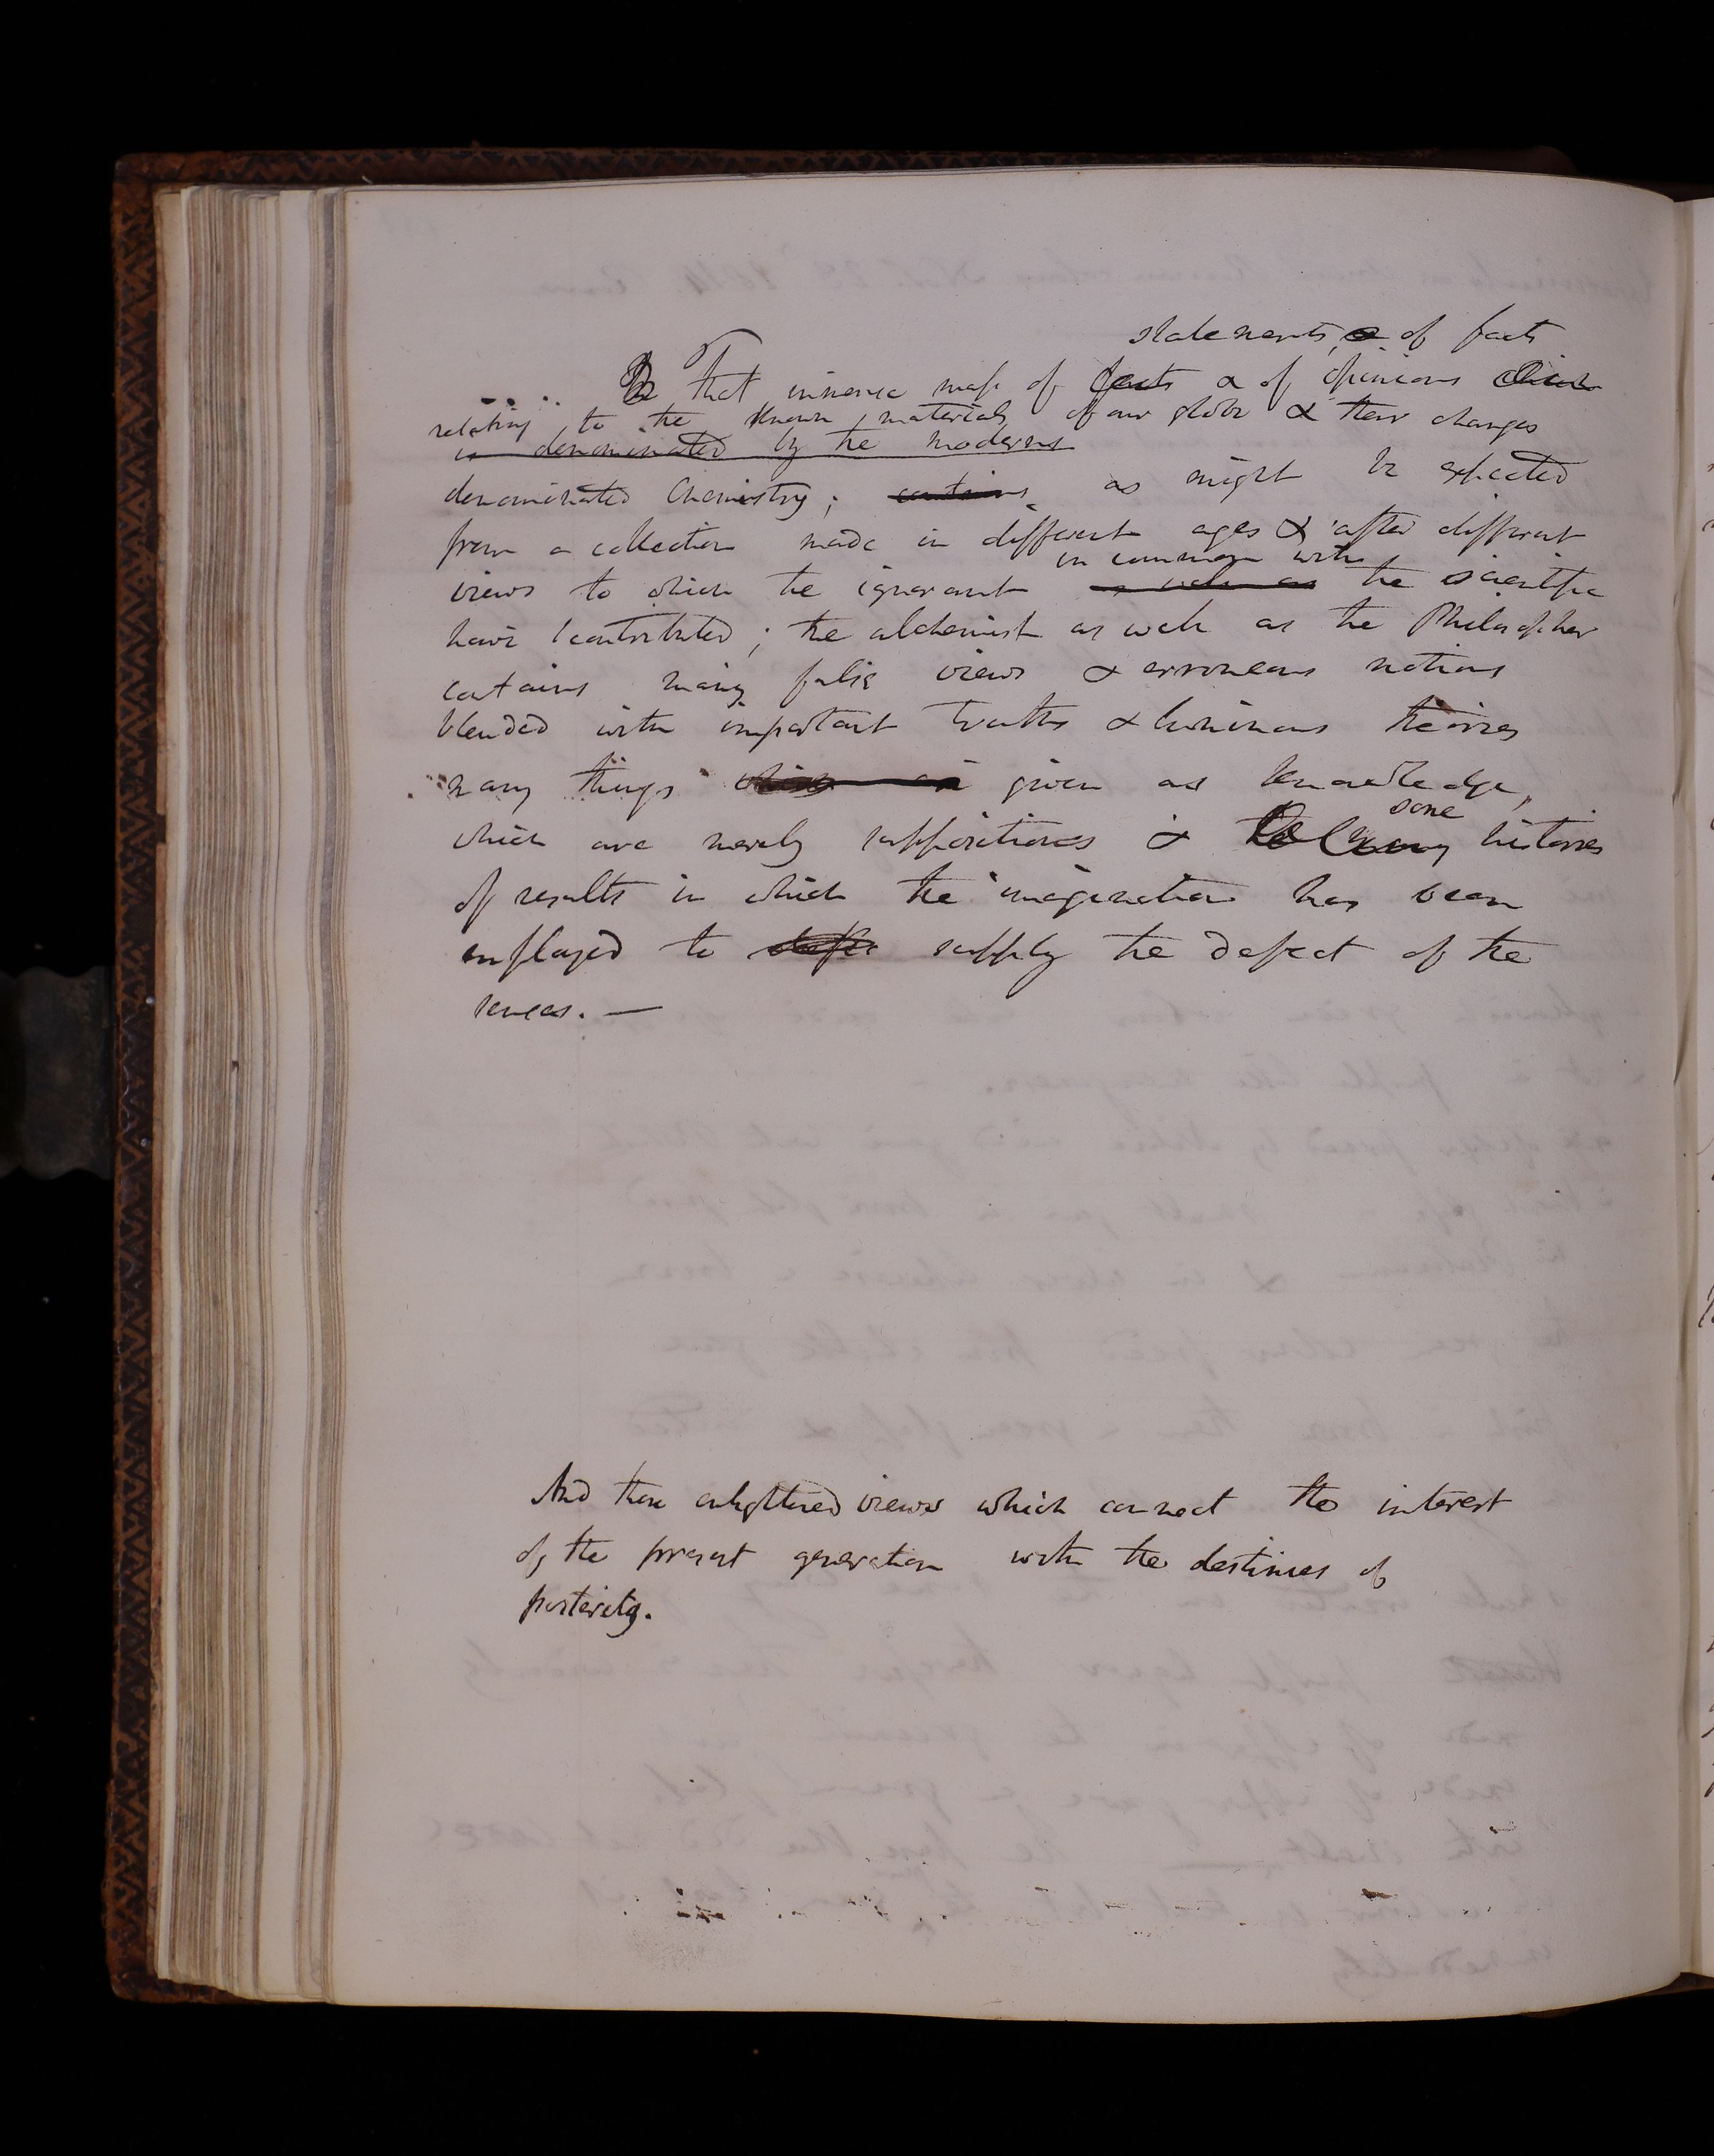 statements of facts
That immense mass of facts & of opinions which
relating to the known materials of our globe & their changes
is denominated by the moderns
denominated Chemistry; contains as might be expected
from a collection made in different ages & after different
in common with
views to which the ignorant as well as the scientific
have contributed; the alchemist as well as the Philosopher
contains many false views & erroneous notions
blended with important truths & luminous theories
many things which are given as knowledge,
some
which are merely suppositions & many histories
of results in which the imagination has been
employed to supply the defect of the
senses. —
And those enlightened views which connect the interest
of the present generation with the destinies of
posterity.